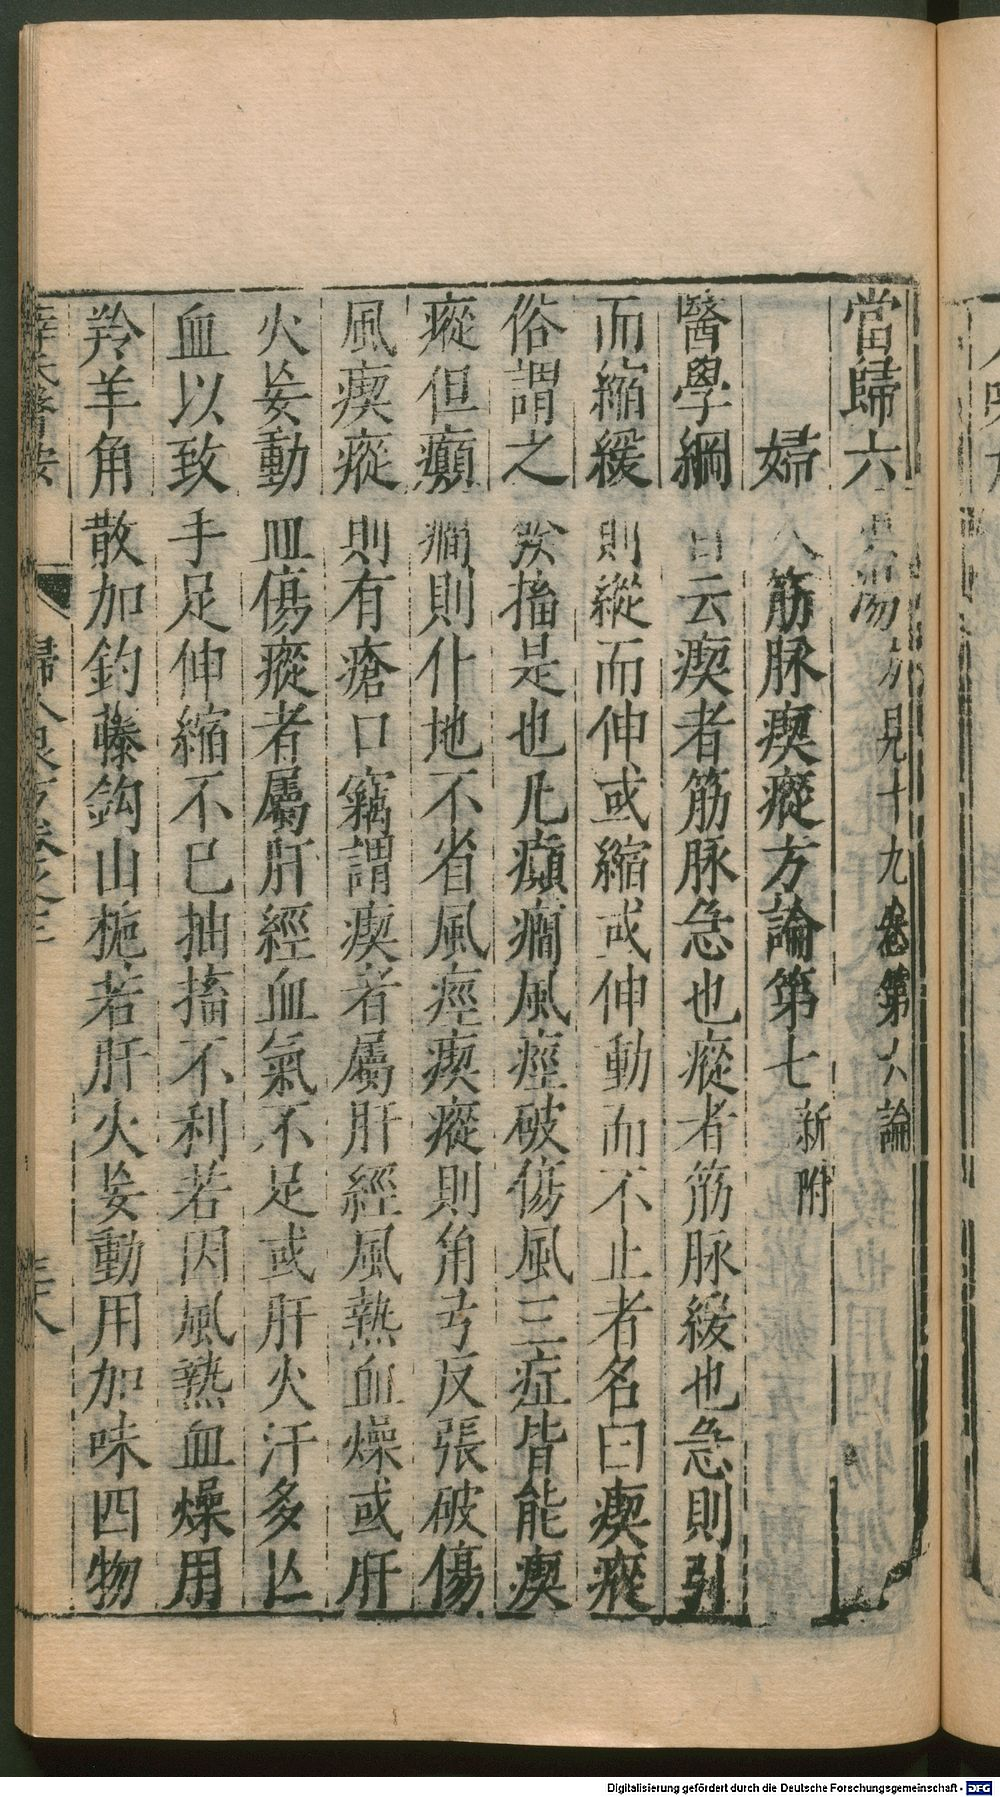 當歸六黃湯方見十九卷第六論
婦人筋脉瘈瘲方論第七新附
醫學綱目云瘈者筋脉急也瘲者筋脉緩也急則引
而縮緩則縱而伸或縮或伸動而不止者名曰瘈瘲
俗謂之發搐是也凡癲癇風痙破傷風三症皆能瘈
瘲但癲癇則仆地不省風痙瘈瘲則角弓反張破傷
風瘈瘲則有瘡口竊謂瘈者屬肝經風熱血燥或肝
火妄動血傷瘲者屬肝經血氣不足或肝火汗多亡
血以致手足伸縮不已抽搐不利若因風熱血燥用
羚羊角散加鈎藤鈎山梔若肝火妄動用加味四物
薛氏醫按 婦人良方卷之三 三八
Digitalisierung gefördert durch die Deutsche Forschungsgemeinschaft - DFG